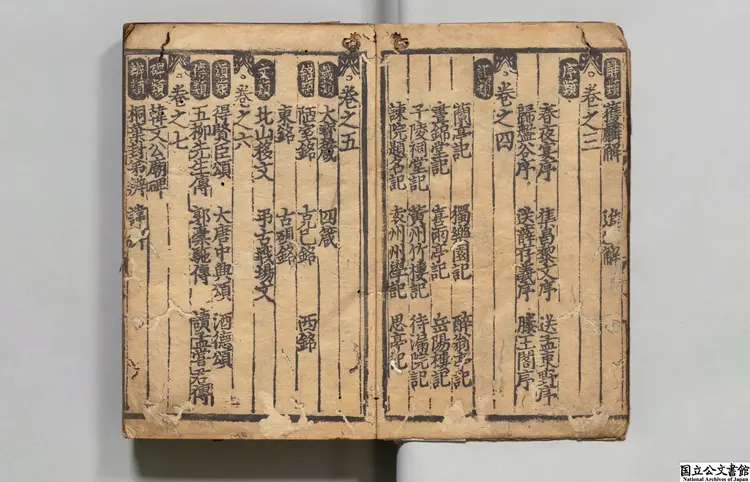 解類 獲麟解 進 解
卷之三
序類
春夜宴序 集昌黎文序 送孟東野序
歸盤谷序 送薛存義序 滕王閣序
卷之四
記類
蘭亭記 獨樂園記 醉翁亭記
晝錦堂記 喜雨亭記 岳陽樓記
子陵祠堂記 黃州竹樓記 待漏院記
諫院題名記 袁州州學記 思亭記
卷之五
箴類 大寶箴 四箴
銘類 陋室銘 克己銘 西銘
東銘 古硯銘
文類 北山移文 弔古戰場文
卷之六
頌類 得賢臣頌 大唐中興頌 酒德頌
傳類 五柳先生傳 郭橐駝傳 讀孟嘗君傳
卷之七
碑類 韓文公廟碑
辯類 桐葉封弟辨 諱辨
国立公文書館
National Archives of Japan